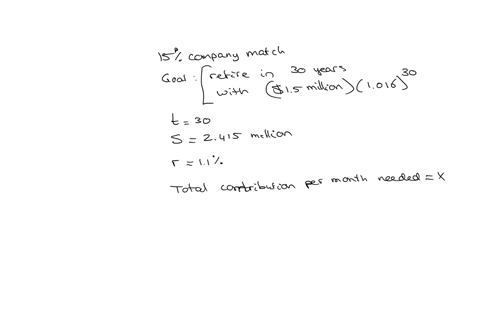 15% company match
Goal: retire in 30 years
with ($1.5 million)(1.016)^30
t = 30
S = 2.415 million
r = 1.1%
Total contribution per month needed = X